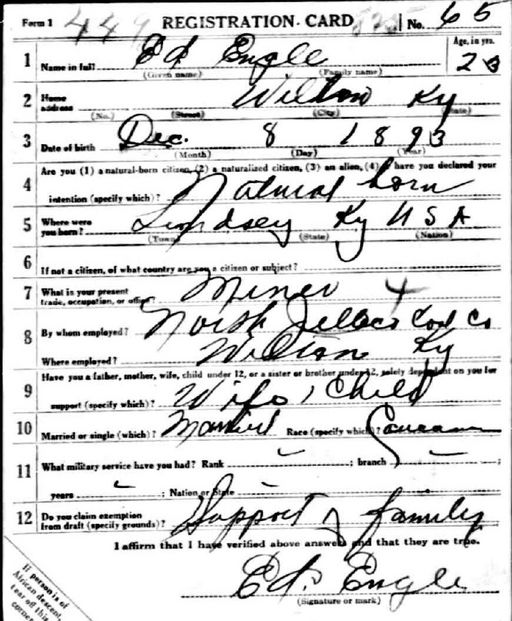 Form 1 449 REGISTRATION CARD No. 65
1 Name in full Ed Engle Age, in yrs. 23
(Given name) (Family name)
2 Home address Wilton Ky
(No.) (Street) (City) (State)
3 Date of birth Dec. 8 1893
(Month) (Day) (Year)
Are you (1) a natural-born citizen, (2) a naturalized citizen, (3) an alien, (4) or have you declared your
4 intention (specify which)? Natural born
5 Where were you born? Lindsey Ky USA
(Town) (State) (Nation)
6 If not a citizen, of what country are you a citizen or subject?
7 What is your present trade, occupation, or office? Miner 4
8 By whom employed? North Jellico Coal Co
Where employed? Wilton Ky
Have you a father, mother, wife, child under 12, or a sister or brother under 12, solely dependent on you for
9 support (specify which)? Wife, Child
10 Married or single (which)? Married Race (specify which)? Caucasian
11 What military service have you had? Rank - ; branch - ;
years - ; Nation or State -
12 Do you claim exemption from draft (specify grounds)? Support of family
I affirm that I have verified above answers and that they are true.
Ed Engle
(Signature or mark)
If person is of
African descent,
tear off this
corner